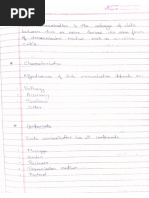 Data communication is the exchange of data
between two or more devices via some form
of transmission medium such as a
cable.
* Characteristics
Effectiveness of data communication depends on
Delivery
Accuracy
Timeliness
Jitter
* Components
Data communication has 5 components
Message
Sender
Receiver
Transmission medium
Protocol